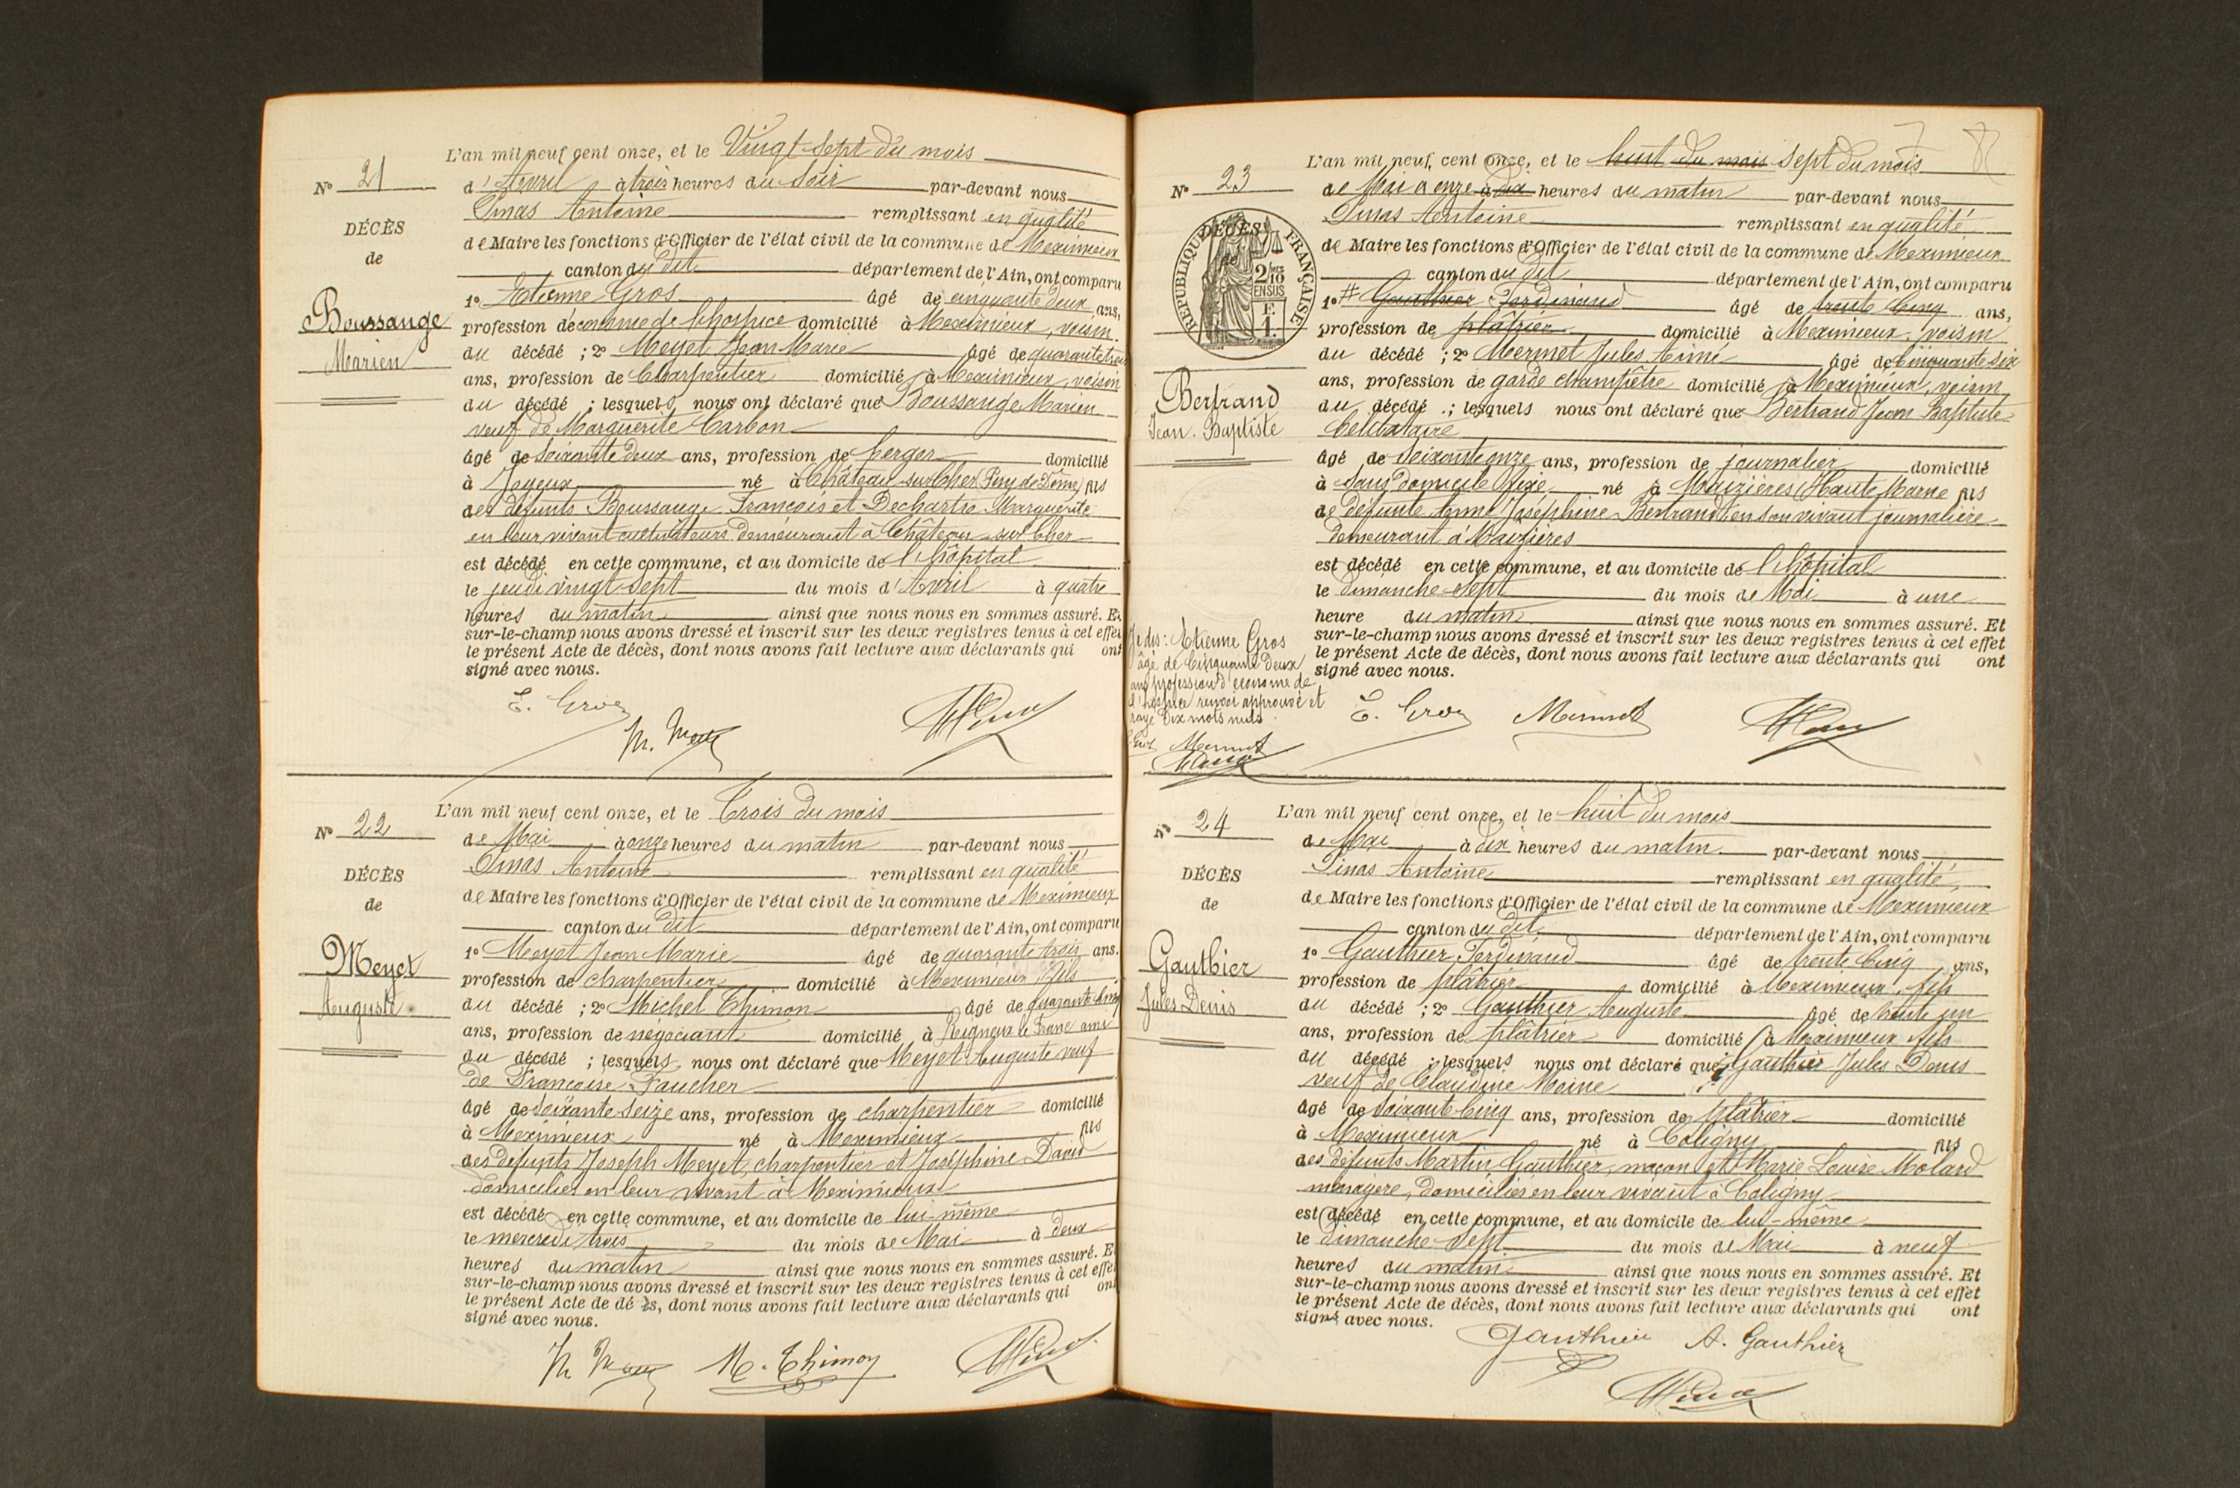 L'an mil neuf cent onze, et le Vingt Sept du mois
N° 21
d'Avril à trois heures du soir par-devant nous
Pinas Antoine remplissant en qualité
DÉCÈS
de Maire les fonctions d'Officier de l'état civil de la commune de Meximieux
de
canton du dit département de l'Ain, ont comparu
1° Etienne Gros âgé de cinquante deux ans,
Boussange
profession d'économe de l'hospice domicilié à Meximieux, voisin
Marien
du décédé ; 2° Meyet Jean Marie âgé de quarante trois
ans, profession de Charpentier domicilié à Meximieux, voisin
du décédé ; lesquels nous ont déclaré que Boussange Marien
veuf de Marguerite Carbon
âgé de Soixante deux ans, profession de berger domicilié
à Joyeux né à Château sur Cher (Puy de Dôme) fils
des défunts Boussange François et Dechartre Marguerite
en leur vivant cultivateurs demeurant à Château sur Cher
est décédé en cette commune, et au domicile de l'hôpital
le jeudi vingt sept du mois d'Avril à quatre
heures du matin ainsi que nous nous en sommes assuré. Et
sur-le-champ nous avons dressé et inscrit sur les deux registres tenus à cet effet
le présent Acte de décès, dont nous avons fait lecture aux déclarants qui ont
signé avec nous.
E. Gros
L'an mil neuf cent onze, et le Trois du mois
N° 22
de Mai à onze heures du matin par-devant nous
Pinas Antoine remplissant en qualité
DÉCÈS
de Maire les fonctions d'Officier de l'état civil de la commune de Meximieux
de
canton du dit département de l'Ain, ont comparu
1° Meyet Jean Marie âgé de quarante trois ans.
Meyet
profession de charpentier domicilié à Meximieux fils
Auguste
du décédé ; 2° Michel Thimon âgé de quarante cinq
ans, profession de négociant domicilié à Reigneux le Franc ami
du décédé ; lesquels nous ont déclaré que Meyet Auguste veuf
de Françoise Faucher
âgé de Soixante Seize ans, profession de charpentier domicilié
à Meximieux né à Meximieux fils
des défunts Joseph Meyet, charpentier et Joséphine David
domiciliés en leur vivant à Meximieux
est décédé en cette commune, et au domicile de lui-même
le mercredi trois du mois de Mai à deux
heures du matin ainsi que nous nous en sommes assuré. Et
sur-le-champ nous avons dressé et inscrit sur les deux registres tenus à cet effet
le présent Acte de décès, dont nous avons fait lecture aux déclarants qui ont
signé avec nous.
M. Thimon
L'an mil neuf cent onze, et le huit du mois Sept du mois
N° 23
de Mai à onze à dix heures du matin par-devant nous
Pinas Antoine remplissant en qualité
DÉCÈS
RÉPUBLIQUE FRANÇAISE
2/10
EN SUS
de Maire les fonctions d'Officier de l'état civil de la commune de Meximieux
canton du dit département de l'Ain, ont comparu
1° # Gauthier Ferdinand âgé de trente cinq ans,
profession de plâtrier domicilié à Meximieux, voisin
du décédé ; 2° Mermet Jules Aimé âgé de Cinquante six
Bertrand
ans, profession de garde champêtre domicilié à Meximieux, voisin
Jean-Baptiste
du décédé ; lesquels nous ont déclaré que Bertrand Jean Baptiste
Célibataire
âgé de Soixante onze ans, profession de journalier domicilié
à sans domicile fixe né à Maizières (Haute Marne fils
de défunte Anne Joséphine Bertrand en son vivant journalière
demeurant à Maizières
est décédé en cette commune, et au domicile de l'hôpital
le Dimanche Sept du mois de Mai à une
heure du matin ainsi que nous nous en sommes assuré. Et
sur-le-champ nous avons dressé et inscrit sur les deux registres tenus à cet effet
le présent Acte de décès, dont nous avons fait lecture aux déclarants qui ont
signé avec nous.
Je dis: Etienne Gros
âgé de Cinquante Deux
ans profession d'économe de
l'hospice renvoi approuvé et
rayé Dix mots nuls
Gros Mermet
E. Gros Mermet
L'an mil neuf cent onze, et le huit du mois
N° 24
de Mai à dix heures du matin par-devant nous
Pinas Antoine remplissant en qualité
DÉCÈS
de Maire les fonctions d'Officier de l'état civil de la commune de Meximieux
de
canton du dit département de l'Ain, ont comparu
1° Gauthier Ferdinand âgé de trente Cinq ans,
Gauthier
profession de plâtrier domicilié à Meximieux, fils
Jules Denis
du décédé ; 2° Gauthier Auguste âgé de trente un
ans, profession de plâtrier domicilié à Meximieux fils
du décédé ; lesquels nous ont déclaré que Gauthier Jules Denis
veuf de Claudine Moine
âgé de Soixante Cinq ans, profession de plâtrier domicilié
à Meximieux né à Coligny fils
des défunts Martin Gauthier, maçon et Marie Louise Molard
ménagère, domiciliés en leur vivant à Coligny
est décédé en cette commune, et au domicile de lui-même
le Dimanche Sept du mois de Mai à neuf
heures du matin ainsi que nous nous en sommes assuré. Et
sur-le-champ nous avons dressé et inscrit sur les deux registres tenus à cet effet
le présent Acte de décès, dont nous avons fait lecture aux déclarants qui ont
signé avec nous.
Gauthier A. Gauthier